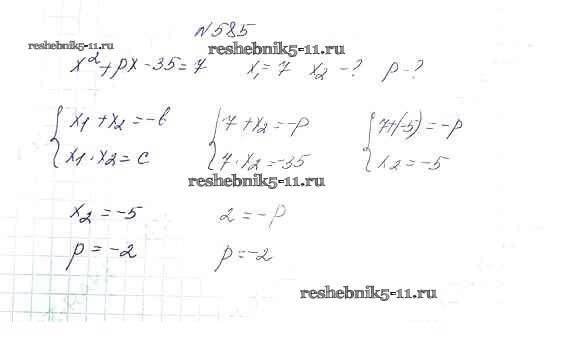 №585
reshebnik5-11.ru
reshebnik5-11.ru
x²+px-35=7 x₁=7 x₂-? p-?
{ x₁+x₂=-b { 7+x₂=-p { 7+(-5)=-p
{ x₁·x₂=c { 7·x₂=-35 { x₂=-5
reshebnik5-11.ru
x₂=-5 2=-p
p=-2 p=-2
reshebnik5-11.ru